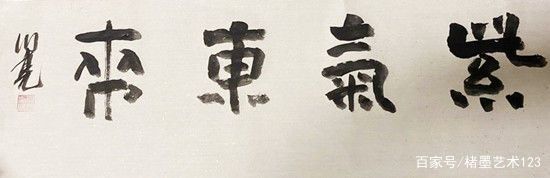 紫氣東來
百家号/楮墨艺术123